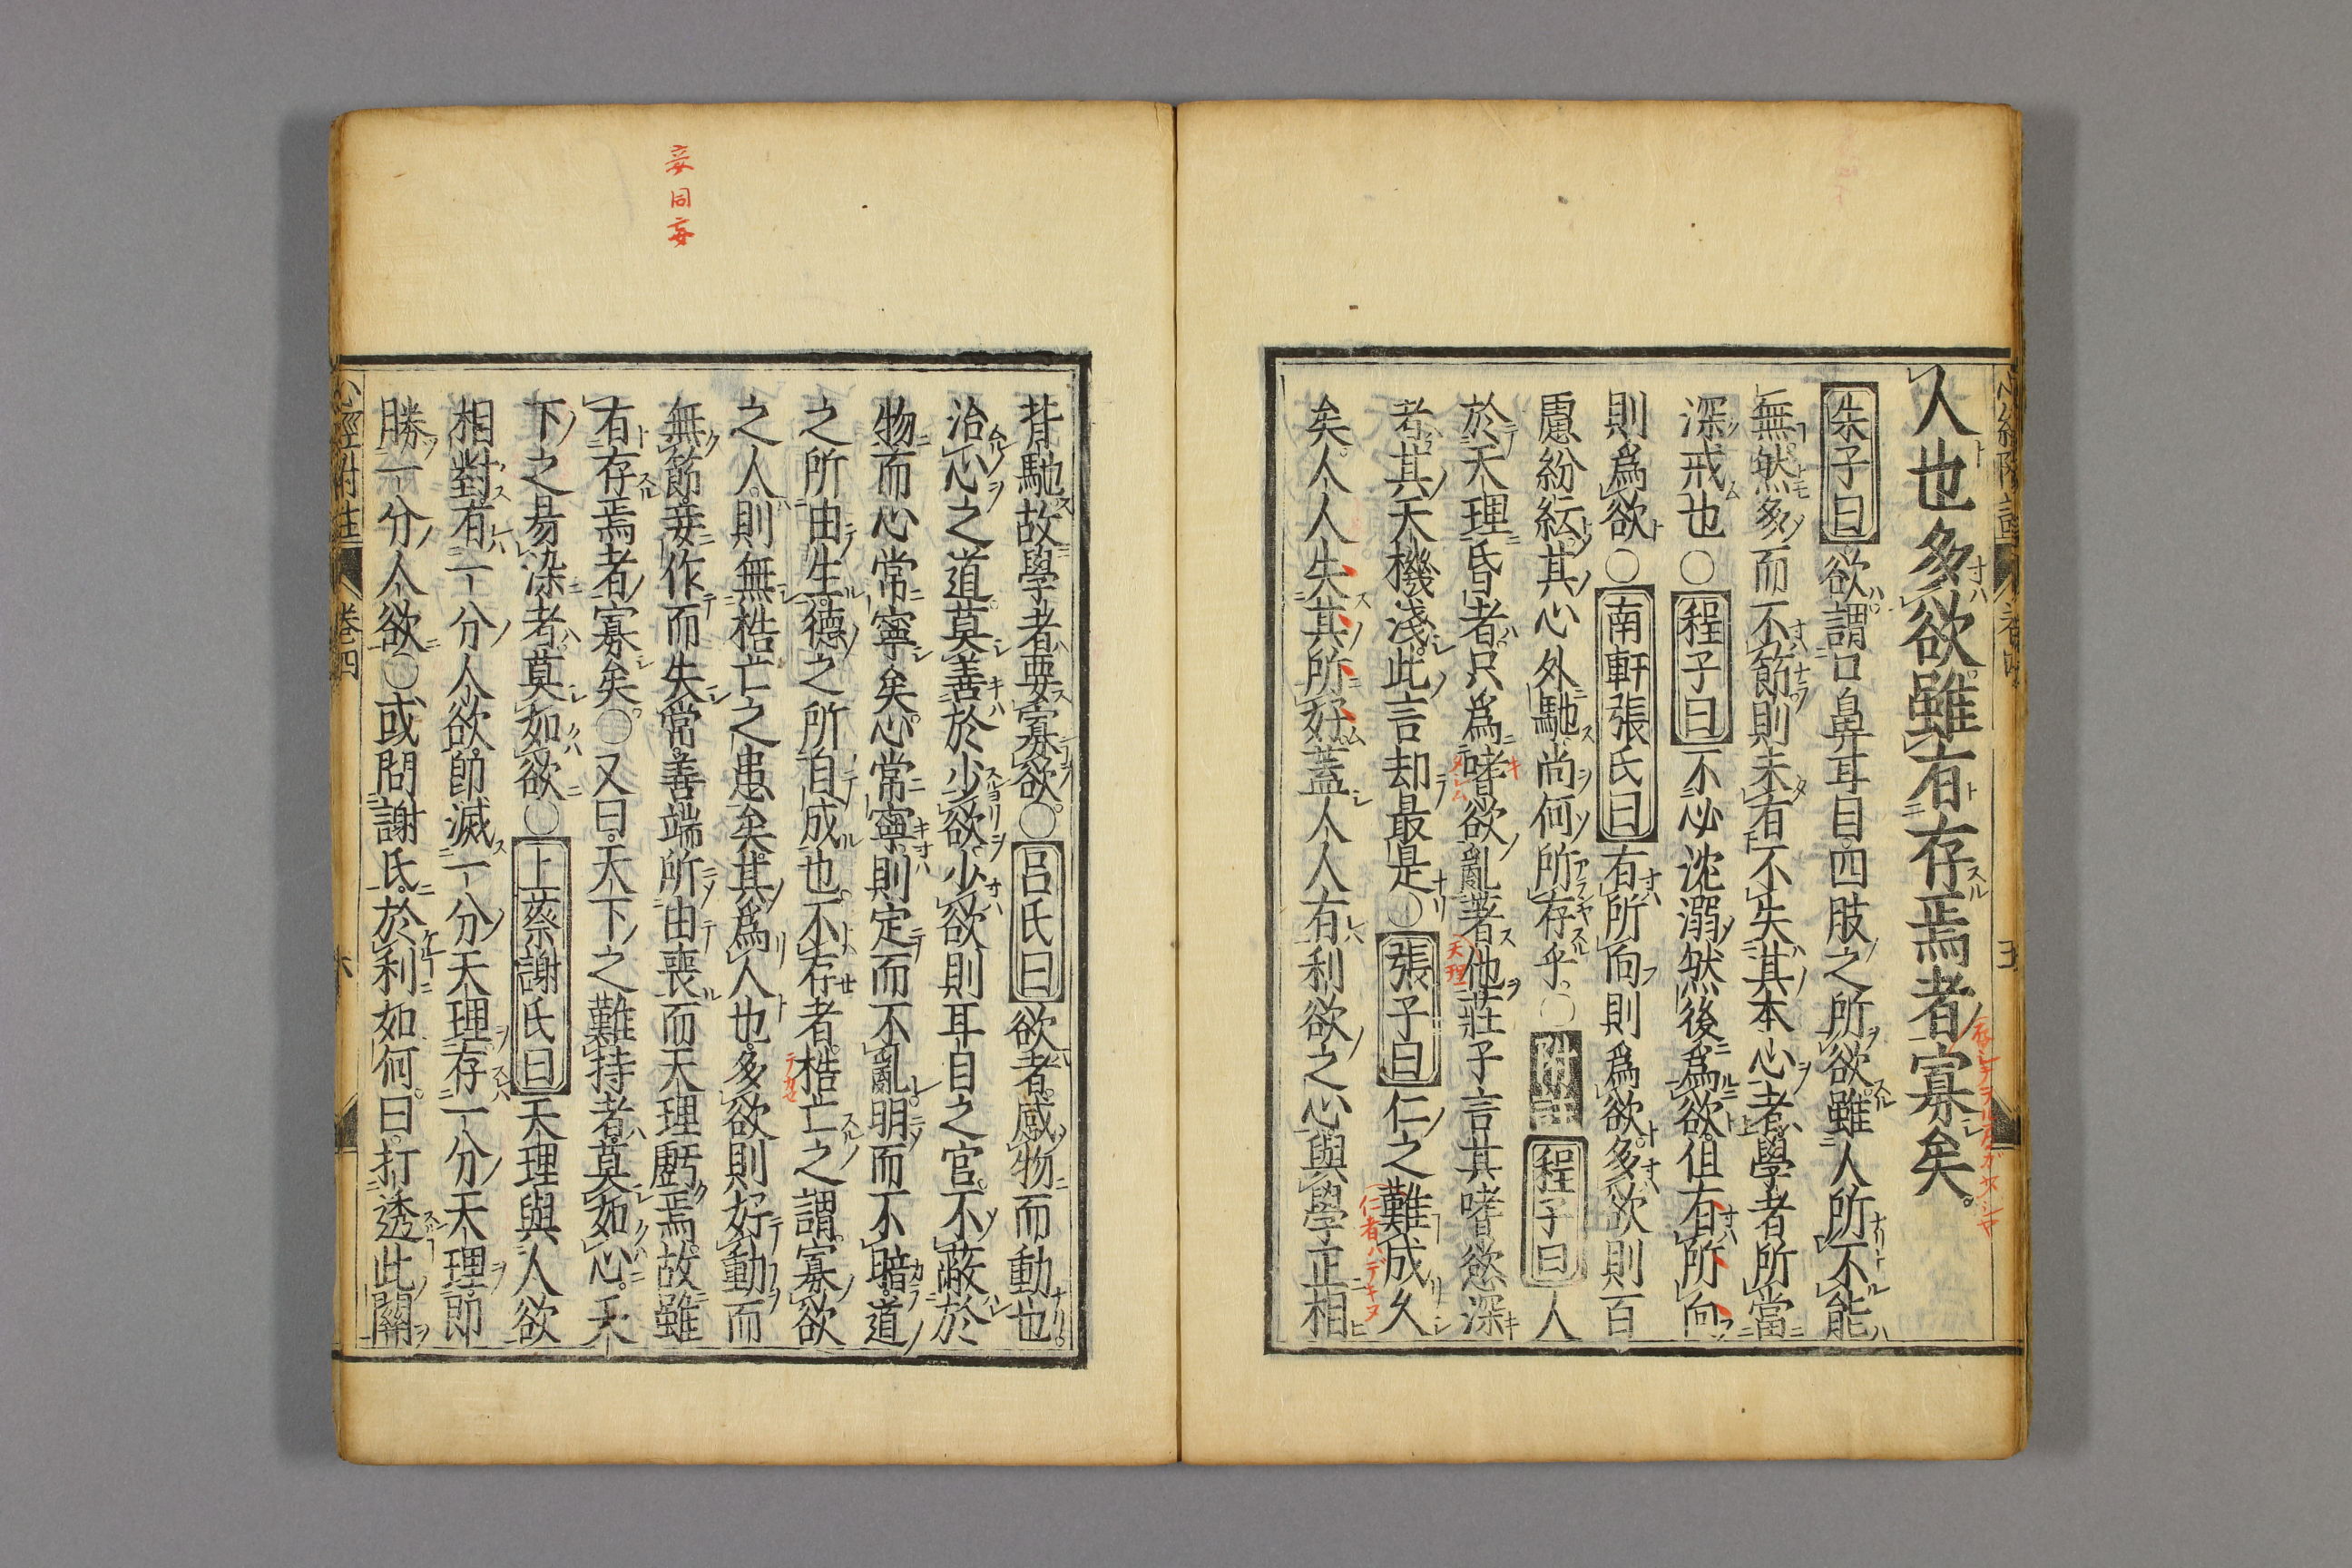 人也多欲雖有存焉者寡矣。
朱子曰欲謂口鼻耳目四肢之所欲雖人所不能
無然多而不節則未有不失其本心者學者所當
深戒也○程子曰不必沈溺然後爲欲但有所向
則爲欲○南軒張氏曰有所向則爲欲多欲則百
慮紛紜其心外馳尚何所存乎○附註程子曰人
於天理昏者只爲嗜欲亂著他莊子言其嗜慾深
者其天機淺此言却最是○張子曰仁之難成久
矣人人失其所好蓋人人有利欲之心與學正相
背馳故學者要寡欲○呂氏曰欲者感物而動也
治心之道莫善於少欲少欲則耳目之官不蔽於
物而心常寧矣心常寧則定而不亂明而不暗道
之所由生德之所自成也不存者梏亡之謂寡欲
之人則無梏亡之患矣其爲人也多欲則好動而
無節妄作而失常善端所由喪而天理虧焉故雖
有存焉者寡矣○又曰天下之難持者莫如心天
下之易染者莫如欲○上蔡謝氏曰天理與人欲
相對有一分人欲卽滅一分天理存一分天理卽
勝一分人欲○或問謝氏於利如何曰打透此關
心經附註 卷四 六
妄同妄
天理
仁者ハデキヌ